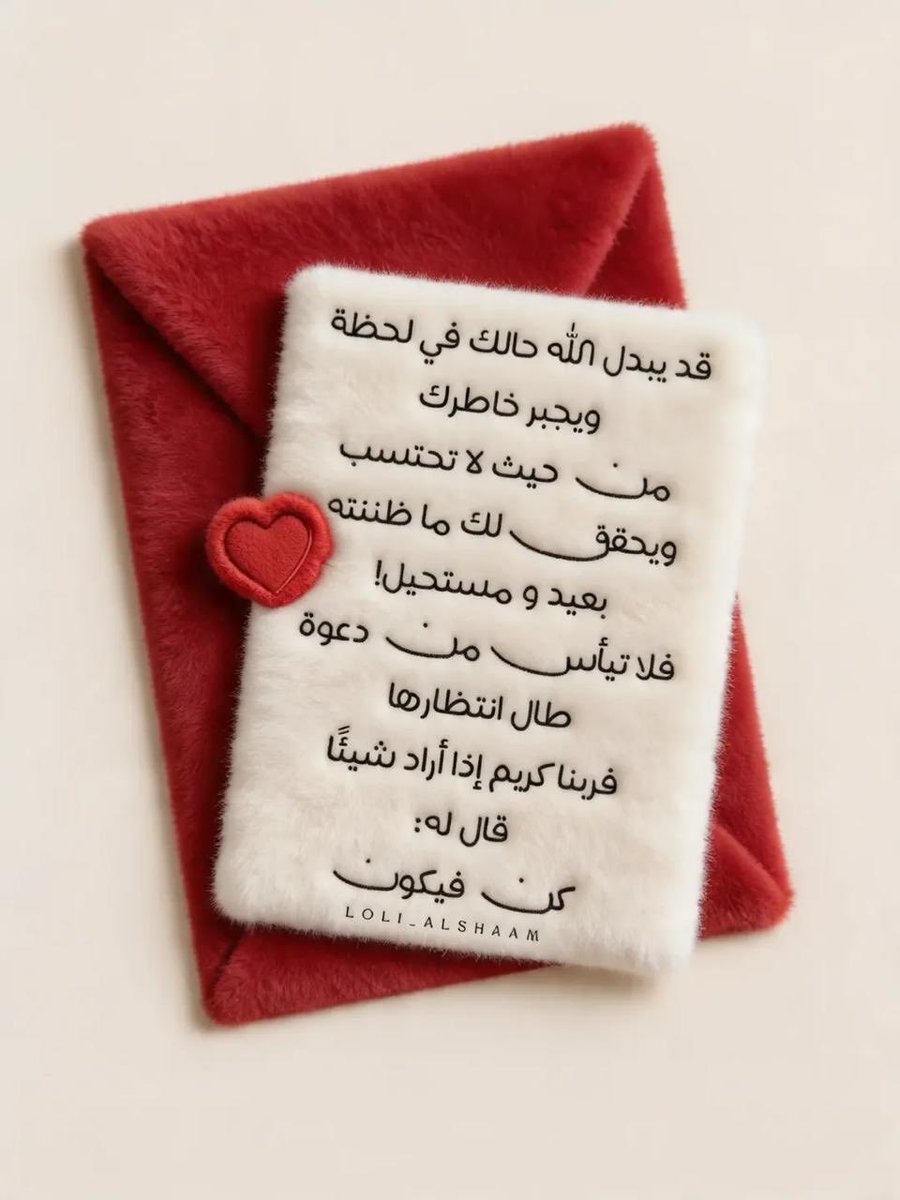 قد يبدل الله حالك في لحظة
ويجبر خاطرك
من حيث لا تحتسب
ويحقق لك ما ظننته
بعيد و مستحيل!
فلا تيأس من دعوة
طال انتظارها
فربنا كريم إذا أراد شيئًا
قال له:
كن فيكون
LOLI_ALSHAAM